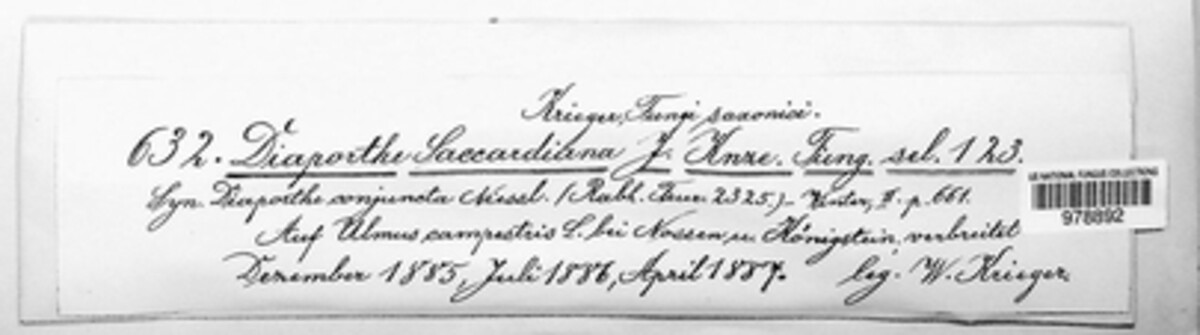 Krieger, Fungi saxonici.
632. Diaporthe Saccardiana J. Knze. Fung. sel. 123.
Syn. Diaporthe conjuncta Niessl. (Rabl. Fuur. 2325.) - Winter, II. p. 661.
Auf Ulmus campestris L. bei Nossen u. Königstein, verbreitet
Dezember 1885, Juli 1886, April 1887. leg. W. Krieger.
US NATIONAL FUNGUS COLLECTIONS
978892